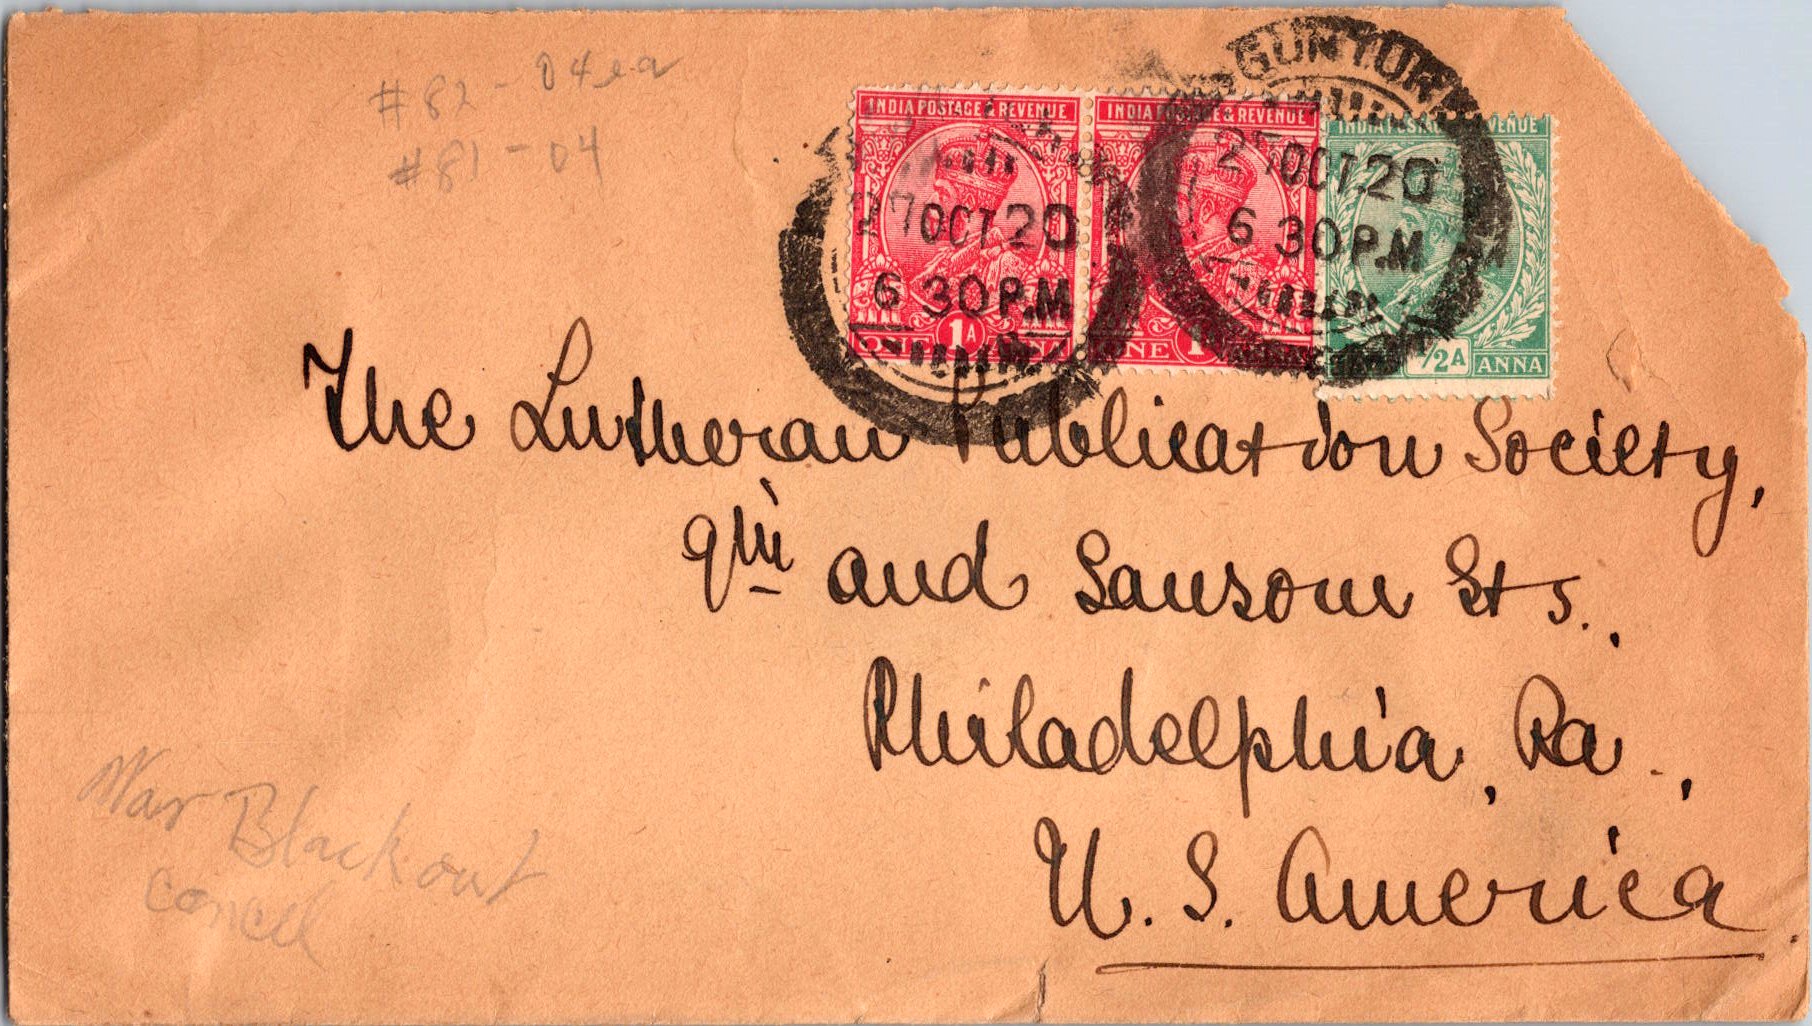 #82 - 04ea
#81 - 04
INDIA POSTAGE & REVENUE
INDIA POSTAGE & REVENUE
INDIA POSTAGE REVENUE
GUNTUR
27 OCT 20
6 30 P.M
27 OCT 20
6 30 P.M
ONE 1A
ONE 1
1/2A ANNA
The Lutheran Publication Society,
9th and Sansom Sts.,
Philadelphia, Pa.,
U. S. America.
War Blackout
cancel